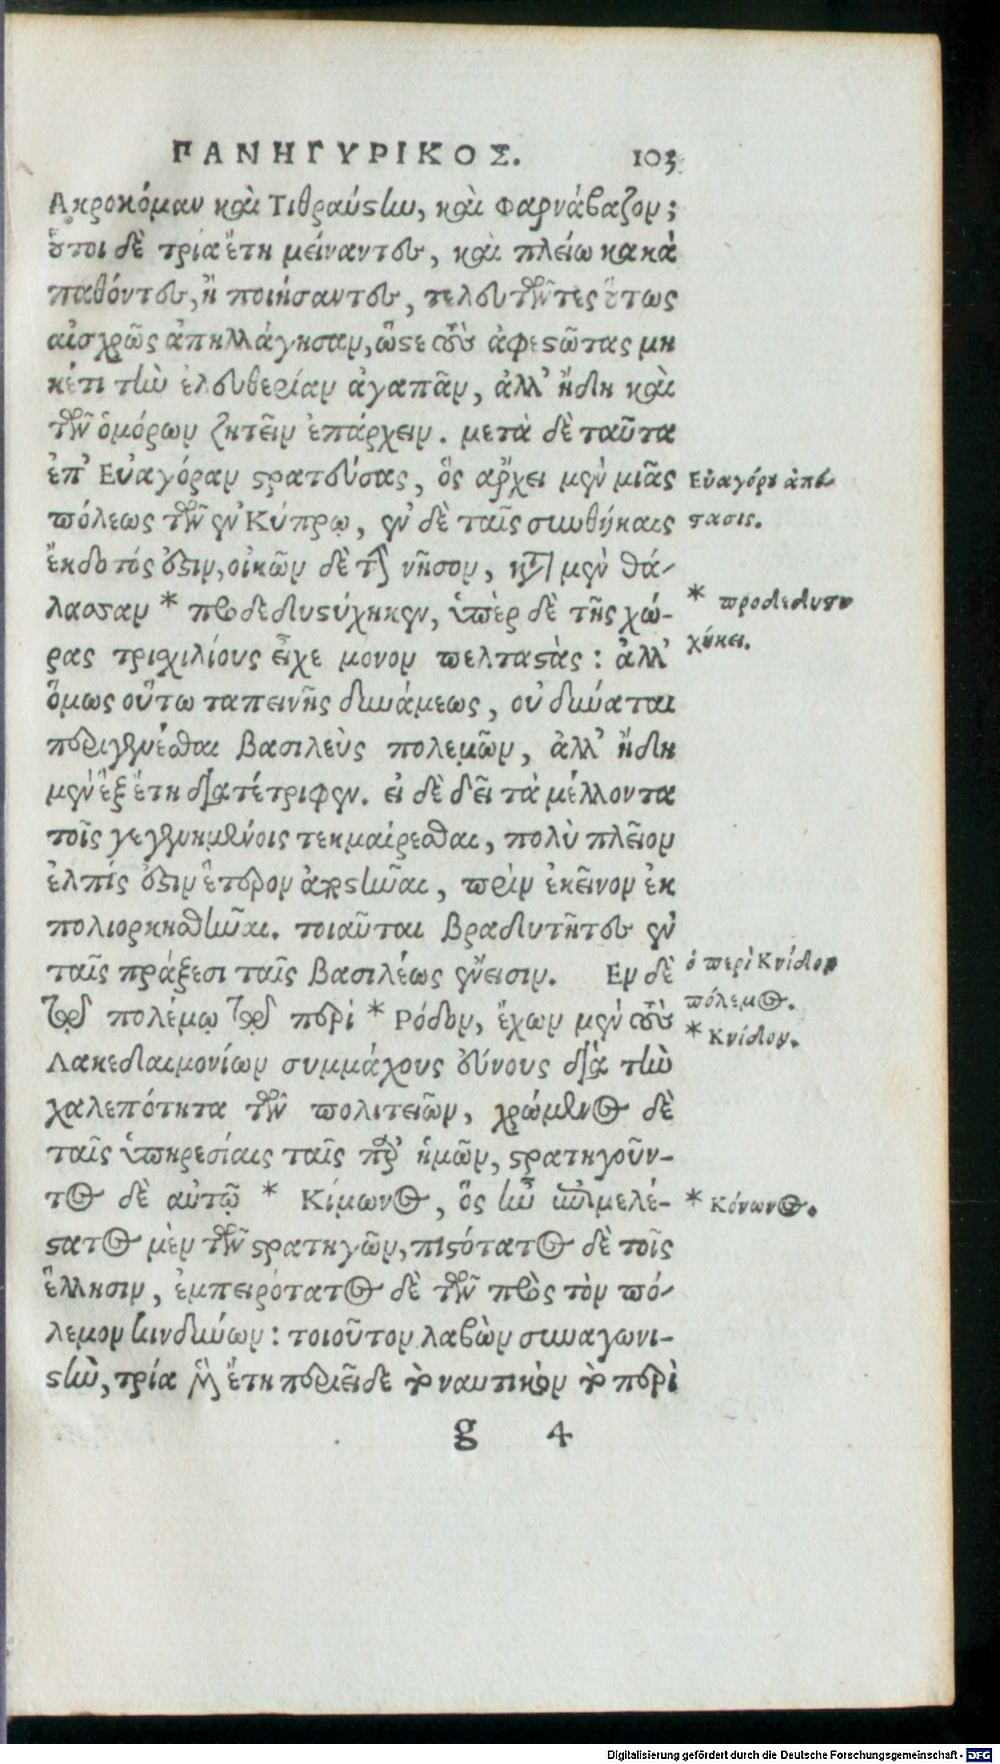 ΠΑΝΗΓΥΡΙΚΟΣ. 103
Ακροκόμαν καὶ Τιθραύστην, καὶ Φαρνάβαζον;
οὗτοι δὲ τρία ἔτη μείναντες, καὶ πλείω κακὰ
παθόντες, ἢ ποιήσαντες, τελευτῶντες οὕτως
αἰσχρῶς ἀπηλλάγησαν, ὥστε τοὺς ἀφεστῶτας μη
κέτι τὴν ἐλευθερίαν ἀγαπᾶν, ἀλλ' ἤδη καὶ
τῶν ὁμόρων ζητεῖν ἐπάρχειν. μετὰ δὲ ταῦτα
ἐπ' Εὐαγόραν στρατεύσας, ὃς ἄρχει μὲν μιᾶς
πόλεως τῶν ἐν Κύπρῳ, ἐν δὲ ταῖς συνθήκαις
ἔκδοτός ἐστιν, οἰκῶν δὲ τὴν νῆσον, κατὰ μὲν θά-
λασσαν * προδεδυστύχηκεν, ὑπὲρ δὲ τῆς χώ-
ρας τρισχιλίους εἶχε μονον πελταστὰς: ἀλλ'
ὅμως οὕτω ταπεινῆς δυνάμεως, οὐ δύναται
περιγενέσθαι βασιλεὺς πολεμῶν, ἀλλ' ἤδη
μὲν ἓξ ἔτη διατέτριφεν. εἰ δὲ δεῖ τὰ μέλλοντα
τοῖς γεγενημένοις τεκμαίρεσθαι, πολὺ πλεῖον
ἐλπίς ἐστιν ἕτερον ἀποστῆναι, πρὶν ἐκεῖνον ἐκ
πολιορκηθῆναι. τοιαῦται βραδυτῆτες ἐν
ταῖς πράξεσι ταῖς βασιλέως ἔνεισιν. Εν δὲ
τῷ πολέμῳ τῷ περὶ * Ρόδον, ἔχων μὲν τοὺς
Λακεδαιμονίων συμμάχους εὔνους διὰ τὴν
χαλεπότητα τῶν πολιτειῶν, χρώμενος δὲ
ταῖς ὑπηρεσίαις ταῖς παρ' ἡμῶν, στρατηγοῦν-
τος δὲ αὐτῷ * Κίμωνος, ὃς ἦν ἐπιμελέ-
στατος μὲν τῶν στρατηγῶν, πιστότατος δὲ τοῖς
ἕλλησιν, ἐμπειρότατος δὲ τῶν πρὸς τὸν πό-
λεμον κινδύνων: τοιοῦτον λαβὼν συναγωνι-
στὴν, τρία μὲν ἔτη περιεῖδε τὸ ναυτικὸν τὸ περὶ
g 4
Εὐαγόρου ἀπό-
στασις.
* προδεδυστυ
χήκει.
ὁ περὶ Κνίδον
πόλεμος.
* Κνίδον.
* Κόνωνος.
Digitalisierung gefördert durch die Deutsche Forschungsgemeinschaft - DFG